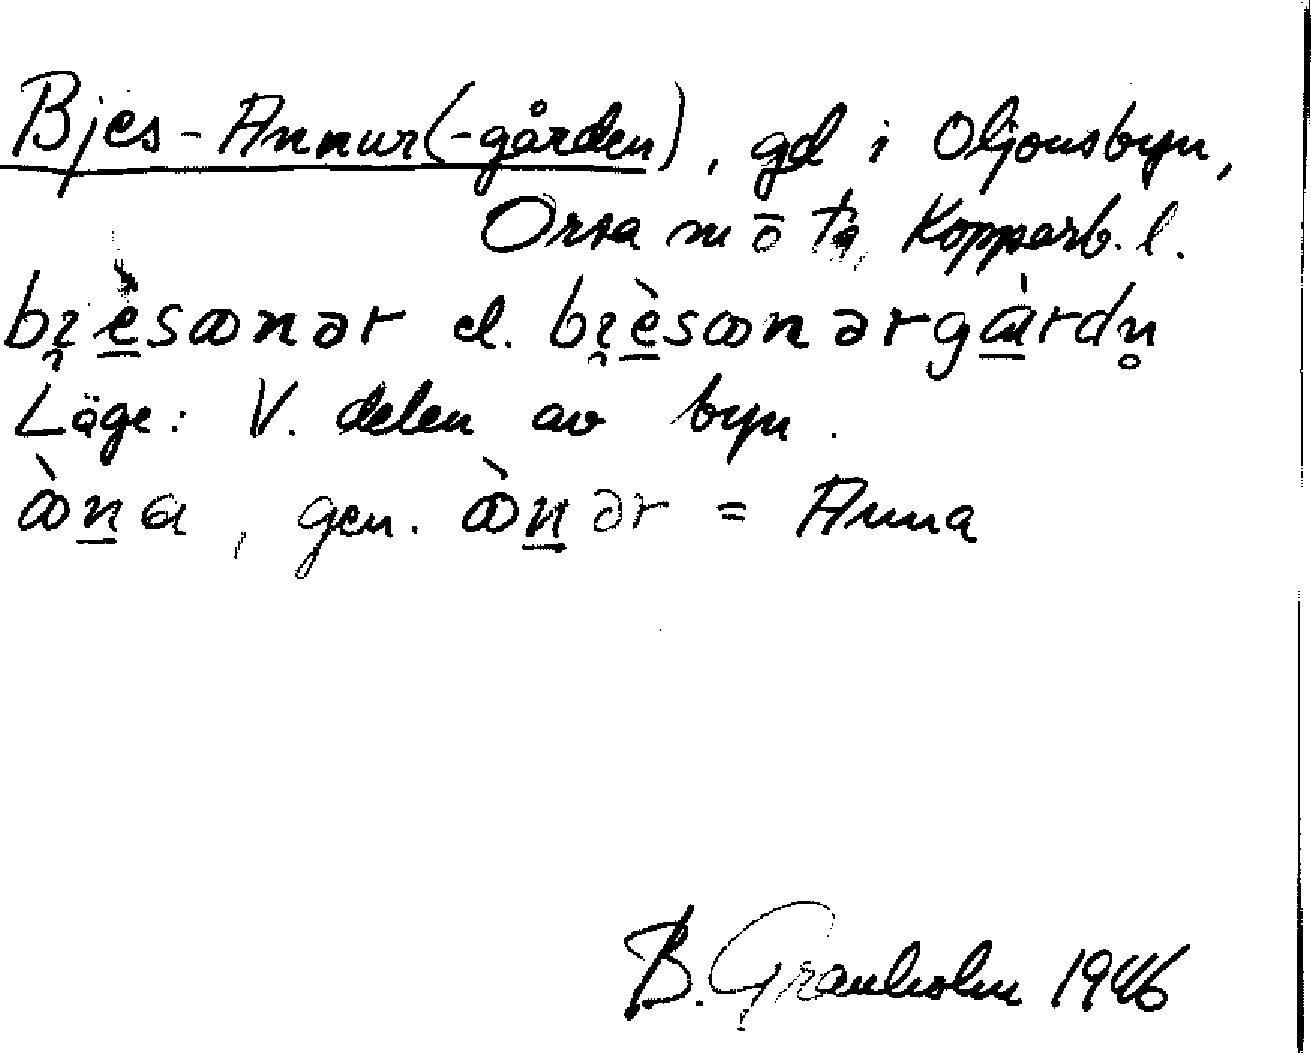 Bjes-Annur(-gården), gd i Oljonsbyn,
Orsa Kopparb. l.
bi̯è̲sꝏnər el. bi̯è̲sꝏnərgà̲rdn̥
Läge: V. delen av byn.
ꝏ̀n̲a, gen. ꝏ̀n̲ər = Anna
B. Granholm 1946